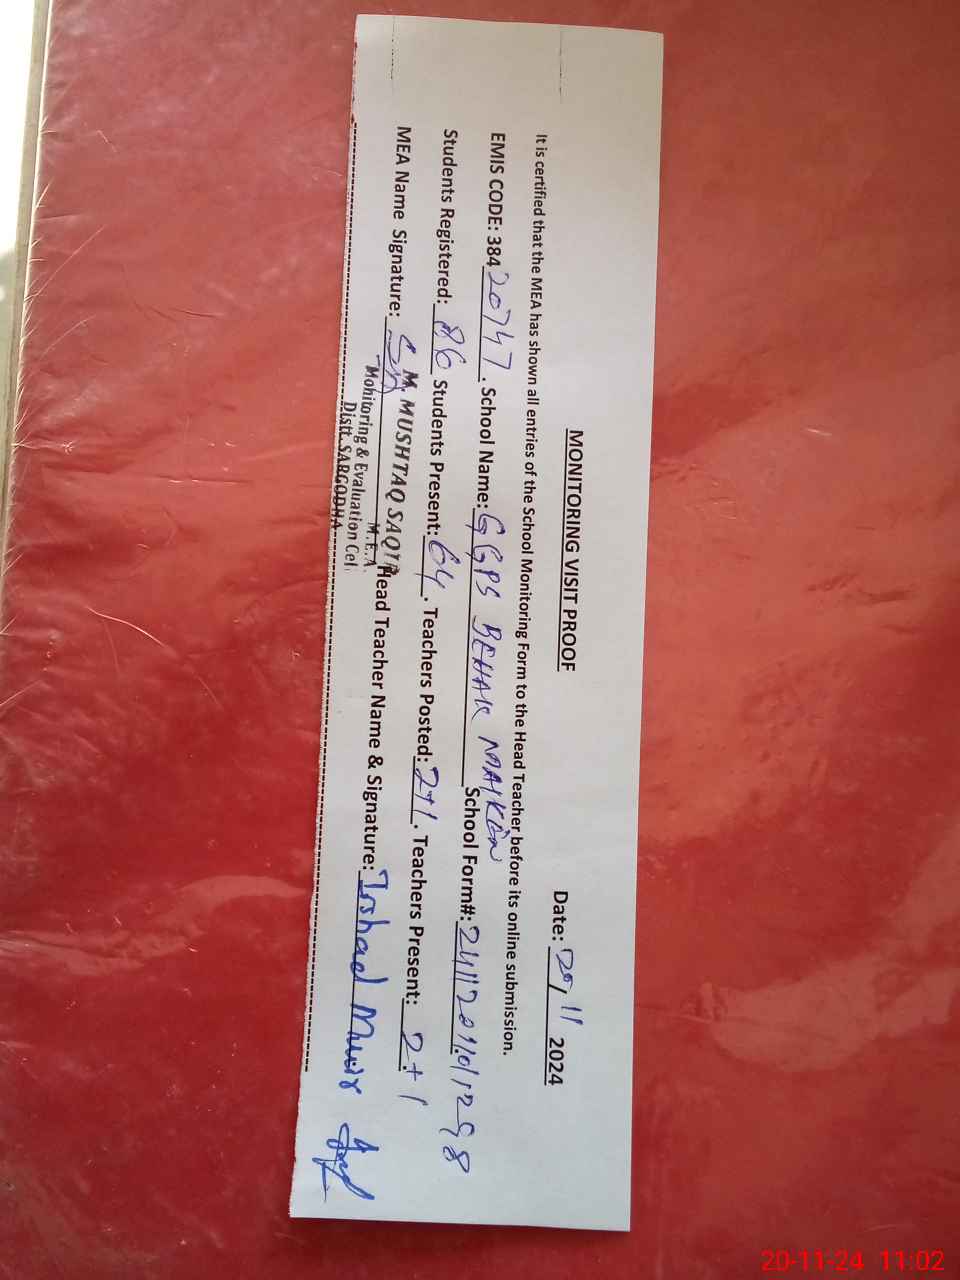 MONITORING VISIT PROOF
Date: 20/11 2024
It is certified that the MEA has shown all entries of the School Monitoring Form to the Head Teacher before its online submission.
EMIS CODE: 38420747. School Name: GGPS BEHAK MAIKEN School Form#:
Students Registered: 86 Students Present: 64. Teachers Posted: 2+1. Teachers Present: 2+1
MEA Name Signature: Head Teacher Name & Signature: Irshad Munir
M. MUSHTAQ SAQIB
M.E.A.
Monitoring & Evaluation Cell
Distt. SARGODHA
20-11-24 11:02